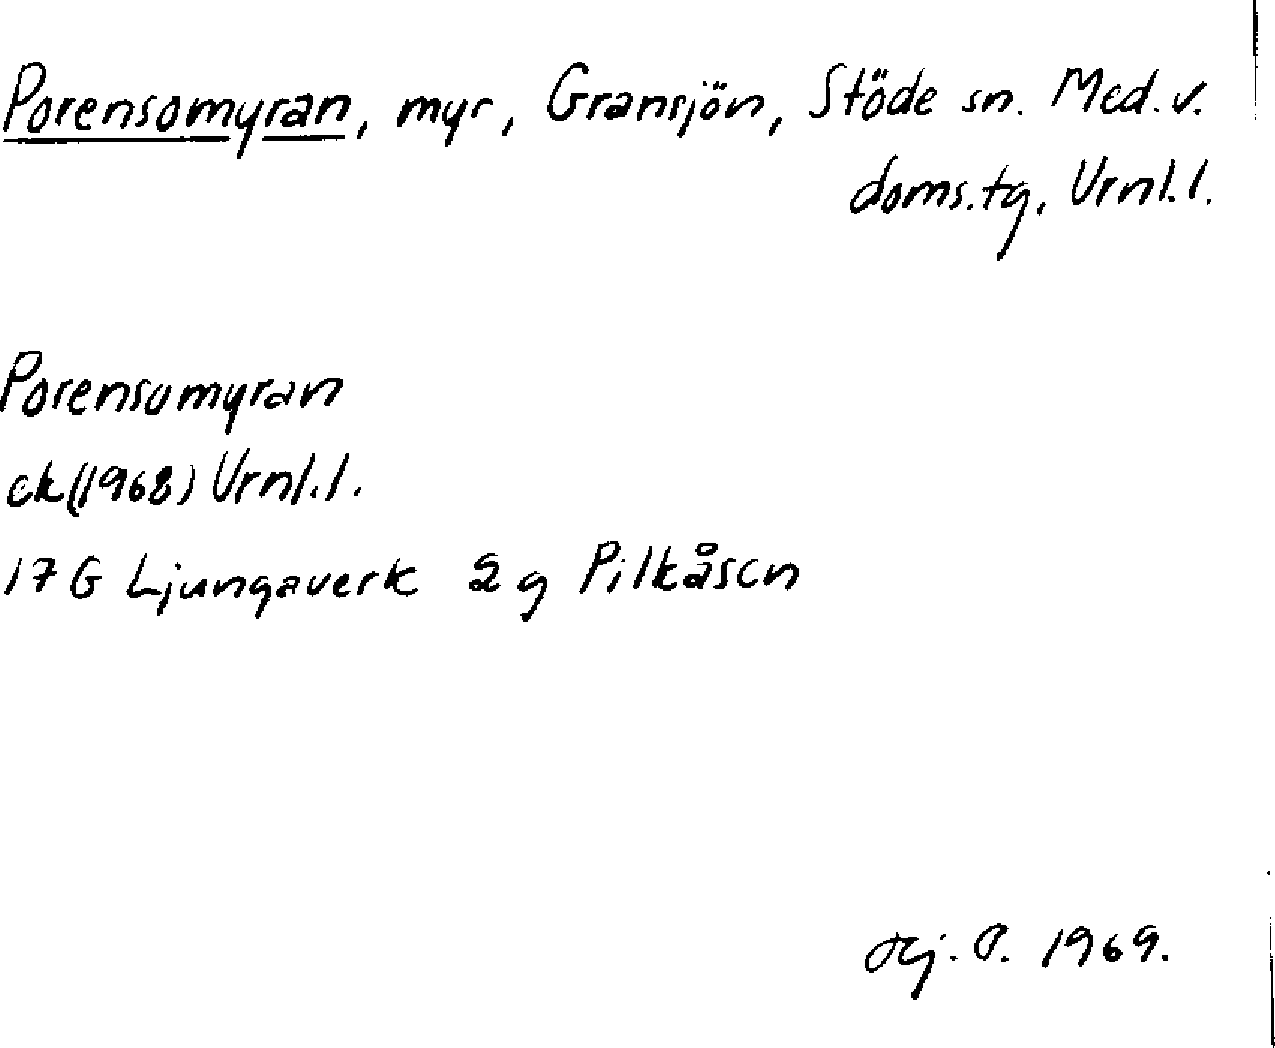 Porensomyran, myr, Gransjön, Stöde sn. Med. v.
doms.tg. Vrnl.l.
Porensomyran
ek (1968) Vrnl.l.
17 G Ljungaverk 2 g Pilkåsen
P. 1969.